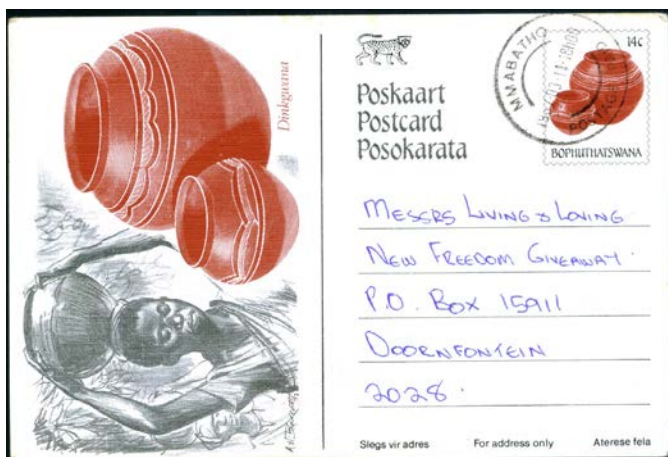 Dinkgwana
Poskaart
Postcard
Posokarata
MMABATHO
14c
BOPHUTHATSWANA
MESSRS LIVING & LOVING
NEW FREEDOM GIVEAWAY
P.O. BOX 15911
DOORNFONTEIN
2028
Slegs vir adres
For address only
Aterese fela